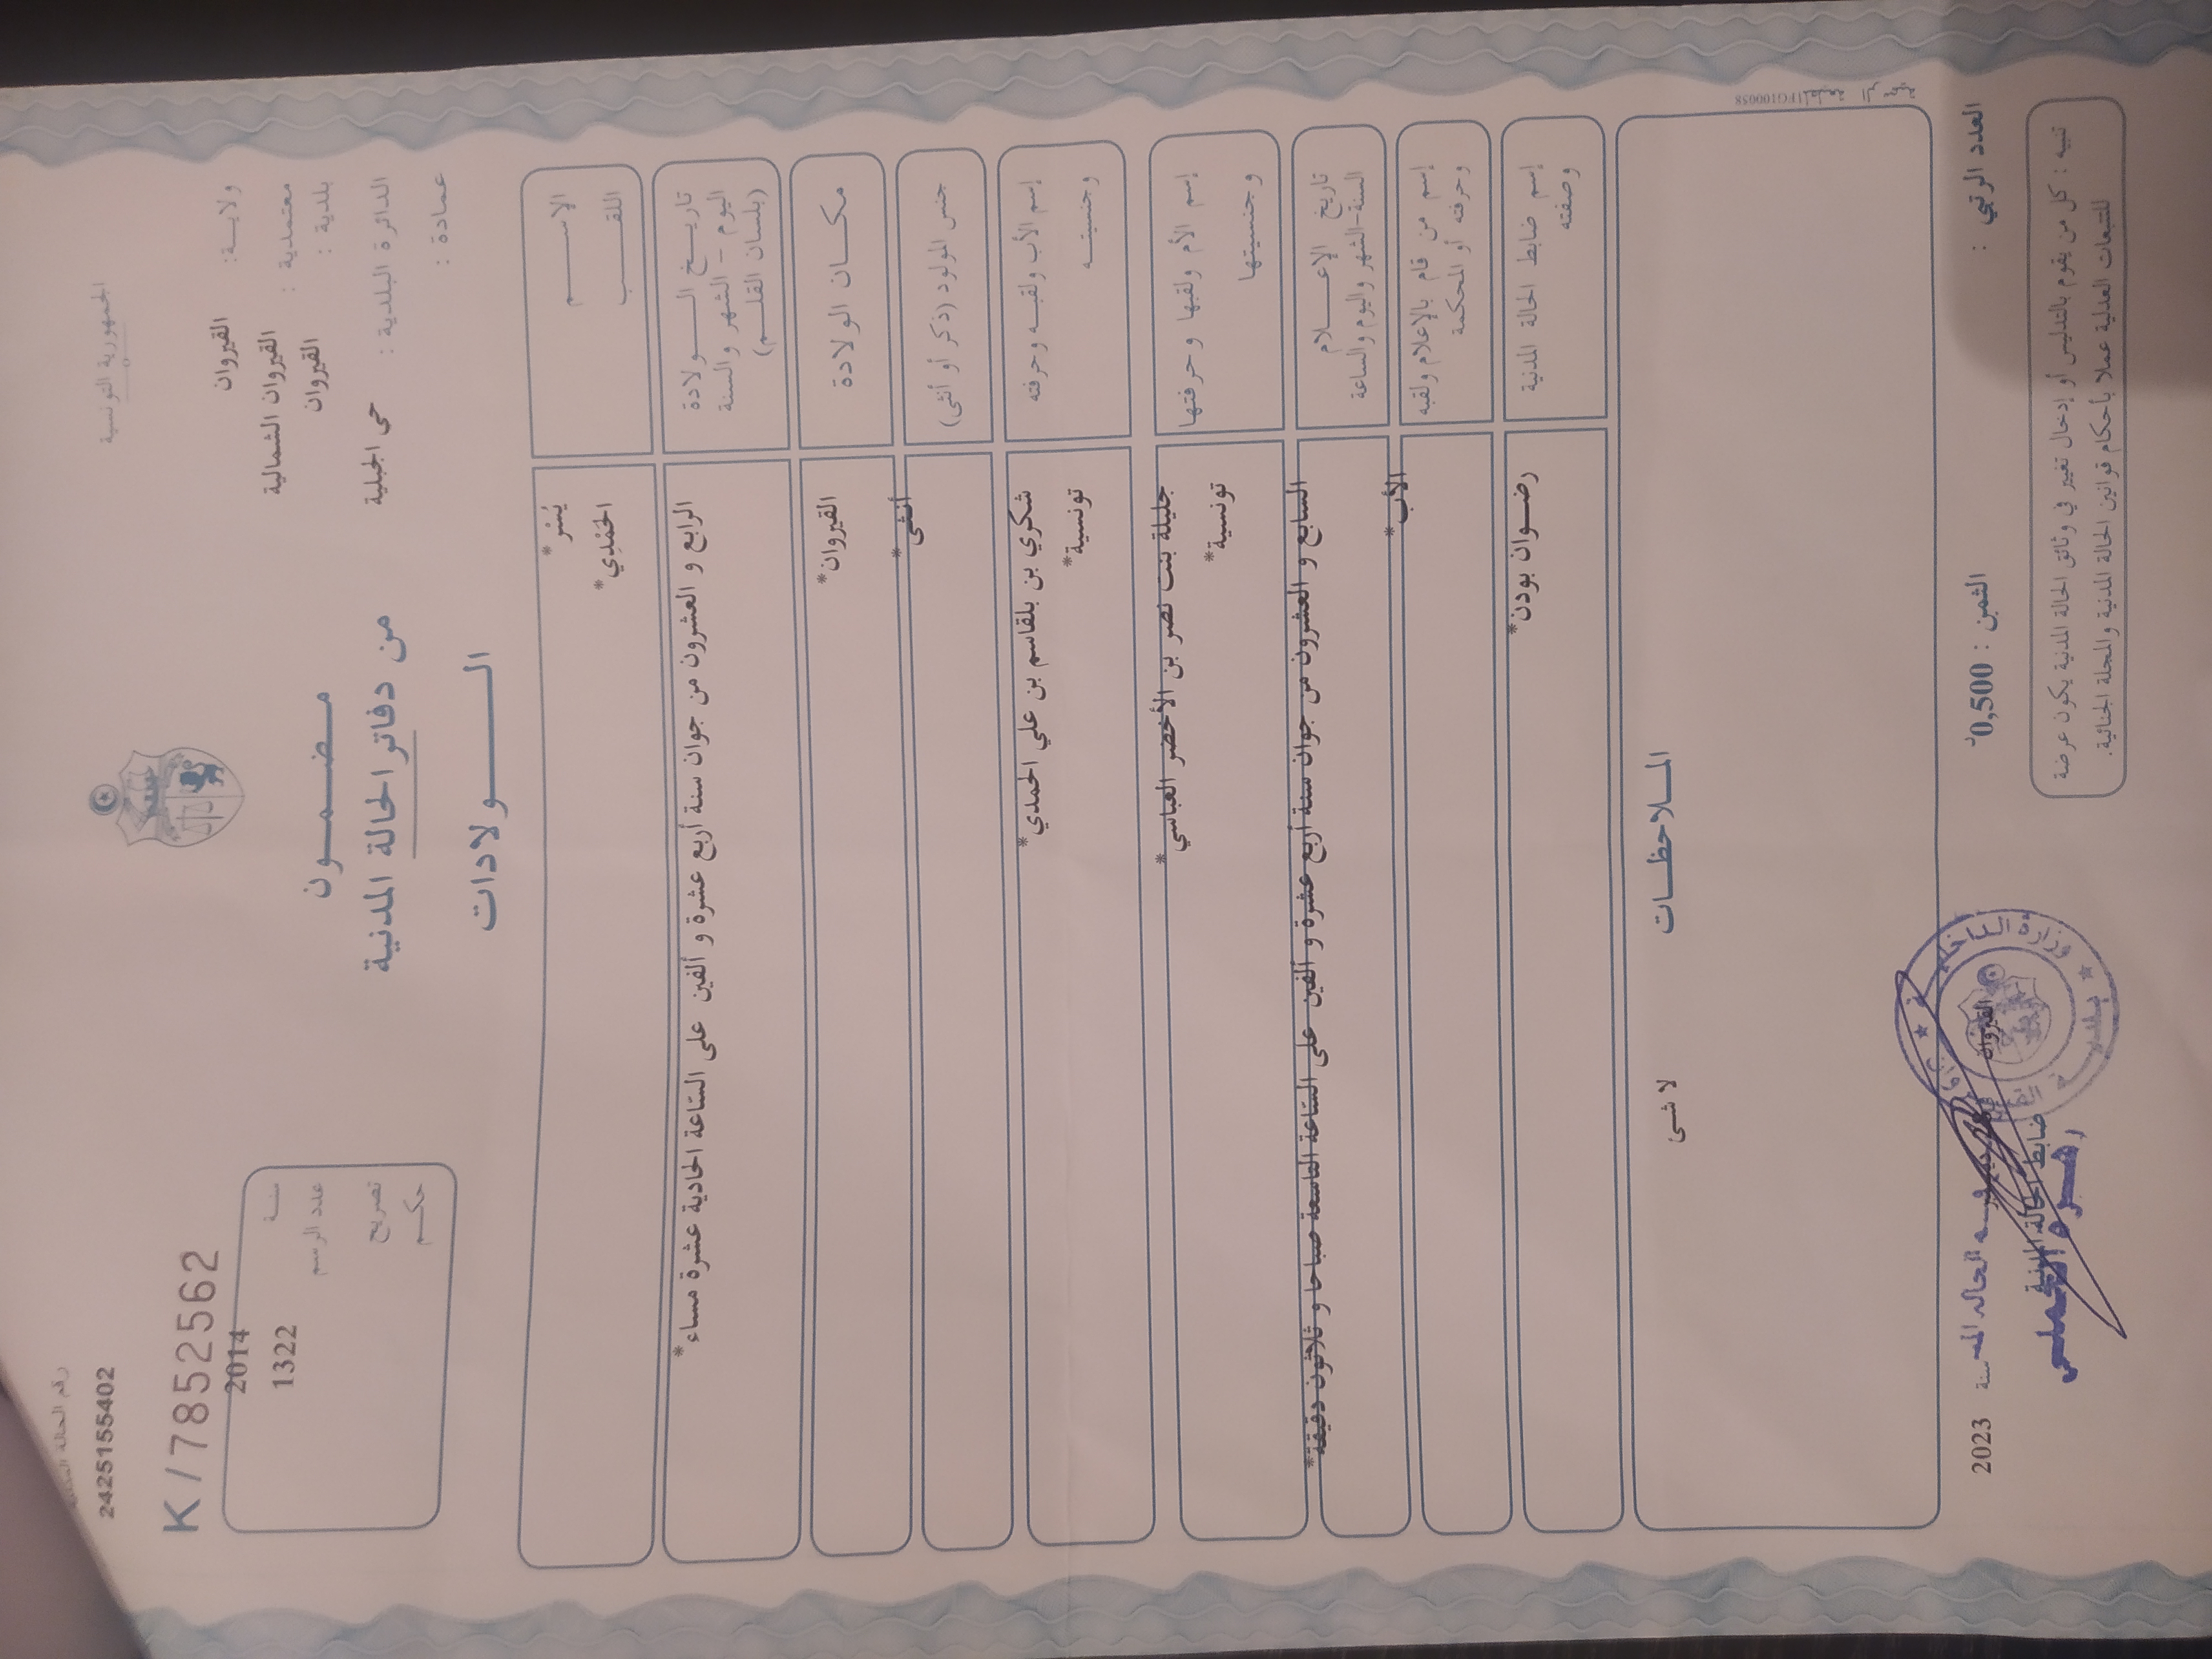 الجمهورية التونسية
ولايـــة: القيروان
معتمدية : القيروان الشمالية
بلدية : القيروان
الدائرة البلدية : حي الجبلية
عمادة :
مـضـمـــون
من دفاتر الحالة المدنية
الـــــولادات
رقم الحالة
2425155402
K/7852562
سنـــة 2014
عدد الرسم 1322
تصريح
حكـــم
الاســـــم يُسْر*
اللقـــــب الحَمْدِي*
تاريـــخ الـــــولادة
اليوم – الشهر والسنة
(بلسان القلـــم)
الرابع و العشرون من جوان سنة أربع عشرة و ألفين على السّاعة الحادية عشرة مساء*
مكـــان الولادة القيروان*
جنس المولود (ذكر أو أنثى) أنثى*
إسم الأب ولقبـــه وحرفته شكري بن بلقاسم بن علي الحمدي*
وجنسيتـــه تونسية*
إسم الأم ولقبها وحرفتها جليلة بنت نصر بن الأخضر العباسي*
وجنسيتها تونسية*
تاريخ الإعـــــلام
السنة-الشهر واليوم والساعة
السابع و العشرون من جوان سنة أربع عشرة و ألفين على السّاعة التاسعة صباحا و ثلاثون دقيقة*
إسم من قام بالإعلام ولقبه الأب*
وحرفته أو المحكمة
إسم ضابط الحالة المدنية رضـــوان بودن*
وصفته
المـــلاحظـــات
لا شىئ
العدد الرتبي :
الثمن : 0,500د
القيروان في
سنة 2023
ضابط الحالة المدنية
وزارة الداخلية
بلديـــة
تنبيه : كل من يقوم بالتدليس أو إدخال تغيير في وثائق الحالة المدنية يكون عرضة
للتتبعات العدلية عملا بأحكام قوانين الحالة المدنية والمجلة الجنائية.